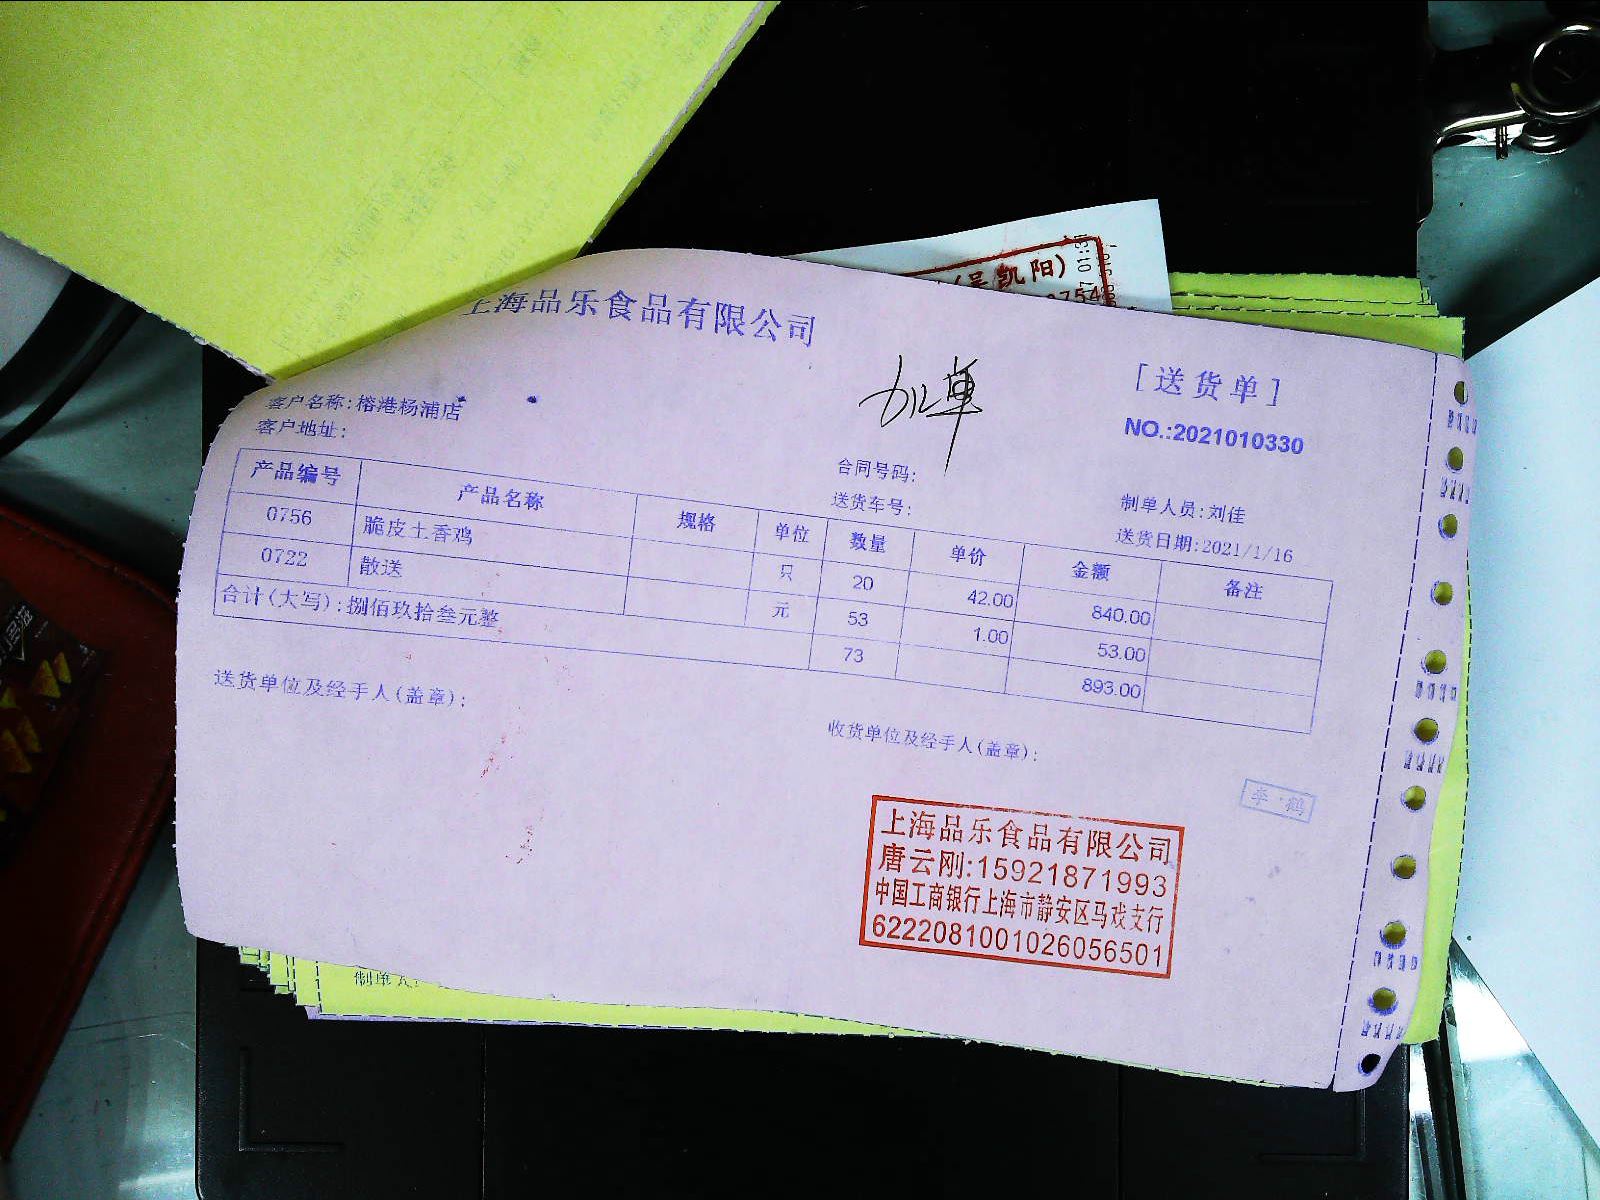 (吴凯阳)
上海品乐食品有限公司
加单
[送货单]
NO.:2021010330
客户名称:榕港杨浦店
客户地址:
合同号码:
送货车号:
制单人员:刘佳
送货日期:2021/1/16
产品编号 产品名称 规格 单位 数量 单价 金额 备注
0756 脆皮土香鸡 只 20 42.00 840.00
0722 散送 元 53 1.00 53.00
合计(大写):捌佰玖拾叁元整 73 893.00
送货单位及经手人(盖章):
收货单位及经手人(盖章):
上海品乐食品有限公司
唐云刚:15921871993
中国工商银行上海市静安区马戏支行
6222081001026056501
制单人: